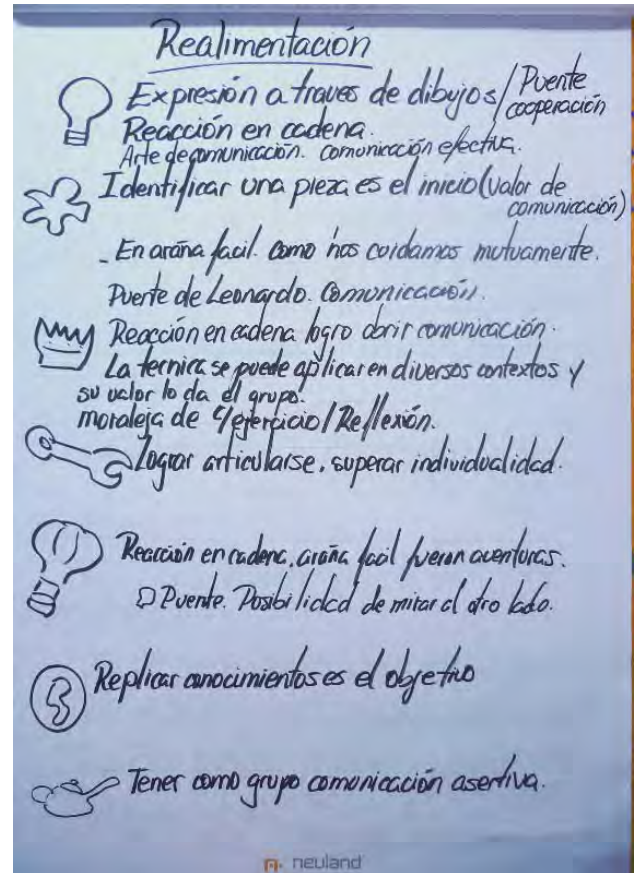 Realimentación
Expresión a traves de dibujos / Puente cooperación
Reacción en cadena.
Arte de comunicación. comunicación efectiva.
Identificar una pieza es el inicio (valor de comunicación)
- En araña facil. como nos cuidamos mutuamente.
Puente de Leonardo. Comunicación.
Reacción en cadena logro abrir comunicación.
La tecnica se puede aplicar en diversos contextos y
su valor lo da el grupo.
moraleja de c/ejercicio / Reflexión.
Lograr articularse, superar individualidad.
Reacción en cadena, araña facil fueron aventuras.
Puente. Posibilidad de mirar al otro lado.
Replicar conocimientos es el objetivo
Tener como grupo comunicación asertiva.
neuland